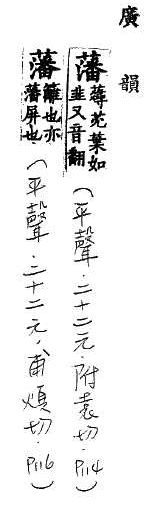 廣韻
藩 䔵𦬁葉如韭又音翻 (平聲．二十二元．附袁切．P114)
藩 籬也亦藩屏也 (平聲．二十二元．甫煩切．P116)